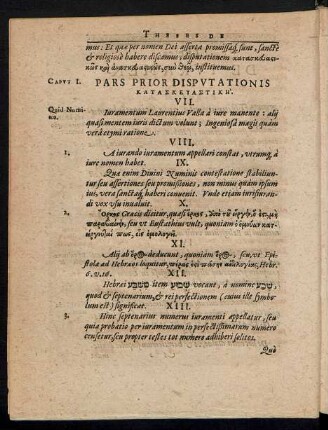 THESES DE
mus: Et quæ per nomen Dei asserta promissaq́, sunt, sanctè
& religiosè habere discamus; disputationem κατασκευα-
κῶς καὶ ἀνασκευακῶς, σὺν Θεῷ, instituemus.
CAPVT I. PARS PRIOR DISPVTATIONIS
ΚΑΤΑΣΚΕΥΑΣΤΙΚΗ.
VII.
Quid Nomine. Iuramentum Laurentius Valla à iure manente: alij
quasi mentem iuris dictam volunt; ingeniosâ magis quàm
verâ etymi ratione.
VIII.
1. A iurando iuramentum appellari constat, utrumq́, à
iure nomen habet.
IX.
Qua enim Divini Numinis contestatione stabiliun-
tur seu assertiones seu promissiones, non minus quàm ipsum
ius, vera sanctaq́; haberi convenit. Unde etiam iurisiuran-
di vox usu invaluit.
X.
2. Ὅρκος Græcis dicitur, quasi ἕρκος,
seu vt Eustathius vult; quoniam
XI.
Alij ab ὅρῳ deducunt, quoniam ὅρῳ, seu, vt Epi-
stola ad Hebræos loquitur, πέρας Hebr.
6. v. 16.
XII.
Hebræi שבע item שביע vocant, à numine שבע,
quod & septenarium, & rei perfectionem (cuius ille symbo-
lum est) significat.
XIII.
3. Hinc septenarius numerus iuramenti appellatur, seu
quia probatio per iuramentum in perfectissimarum numero
censetur, seu propter testes tot numero adhiberi solitos.
Quò